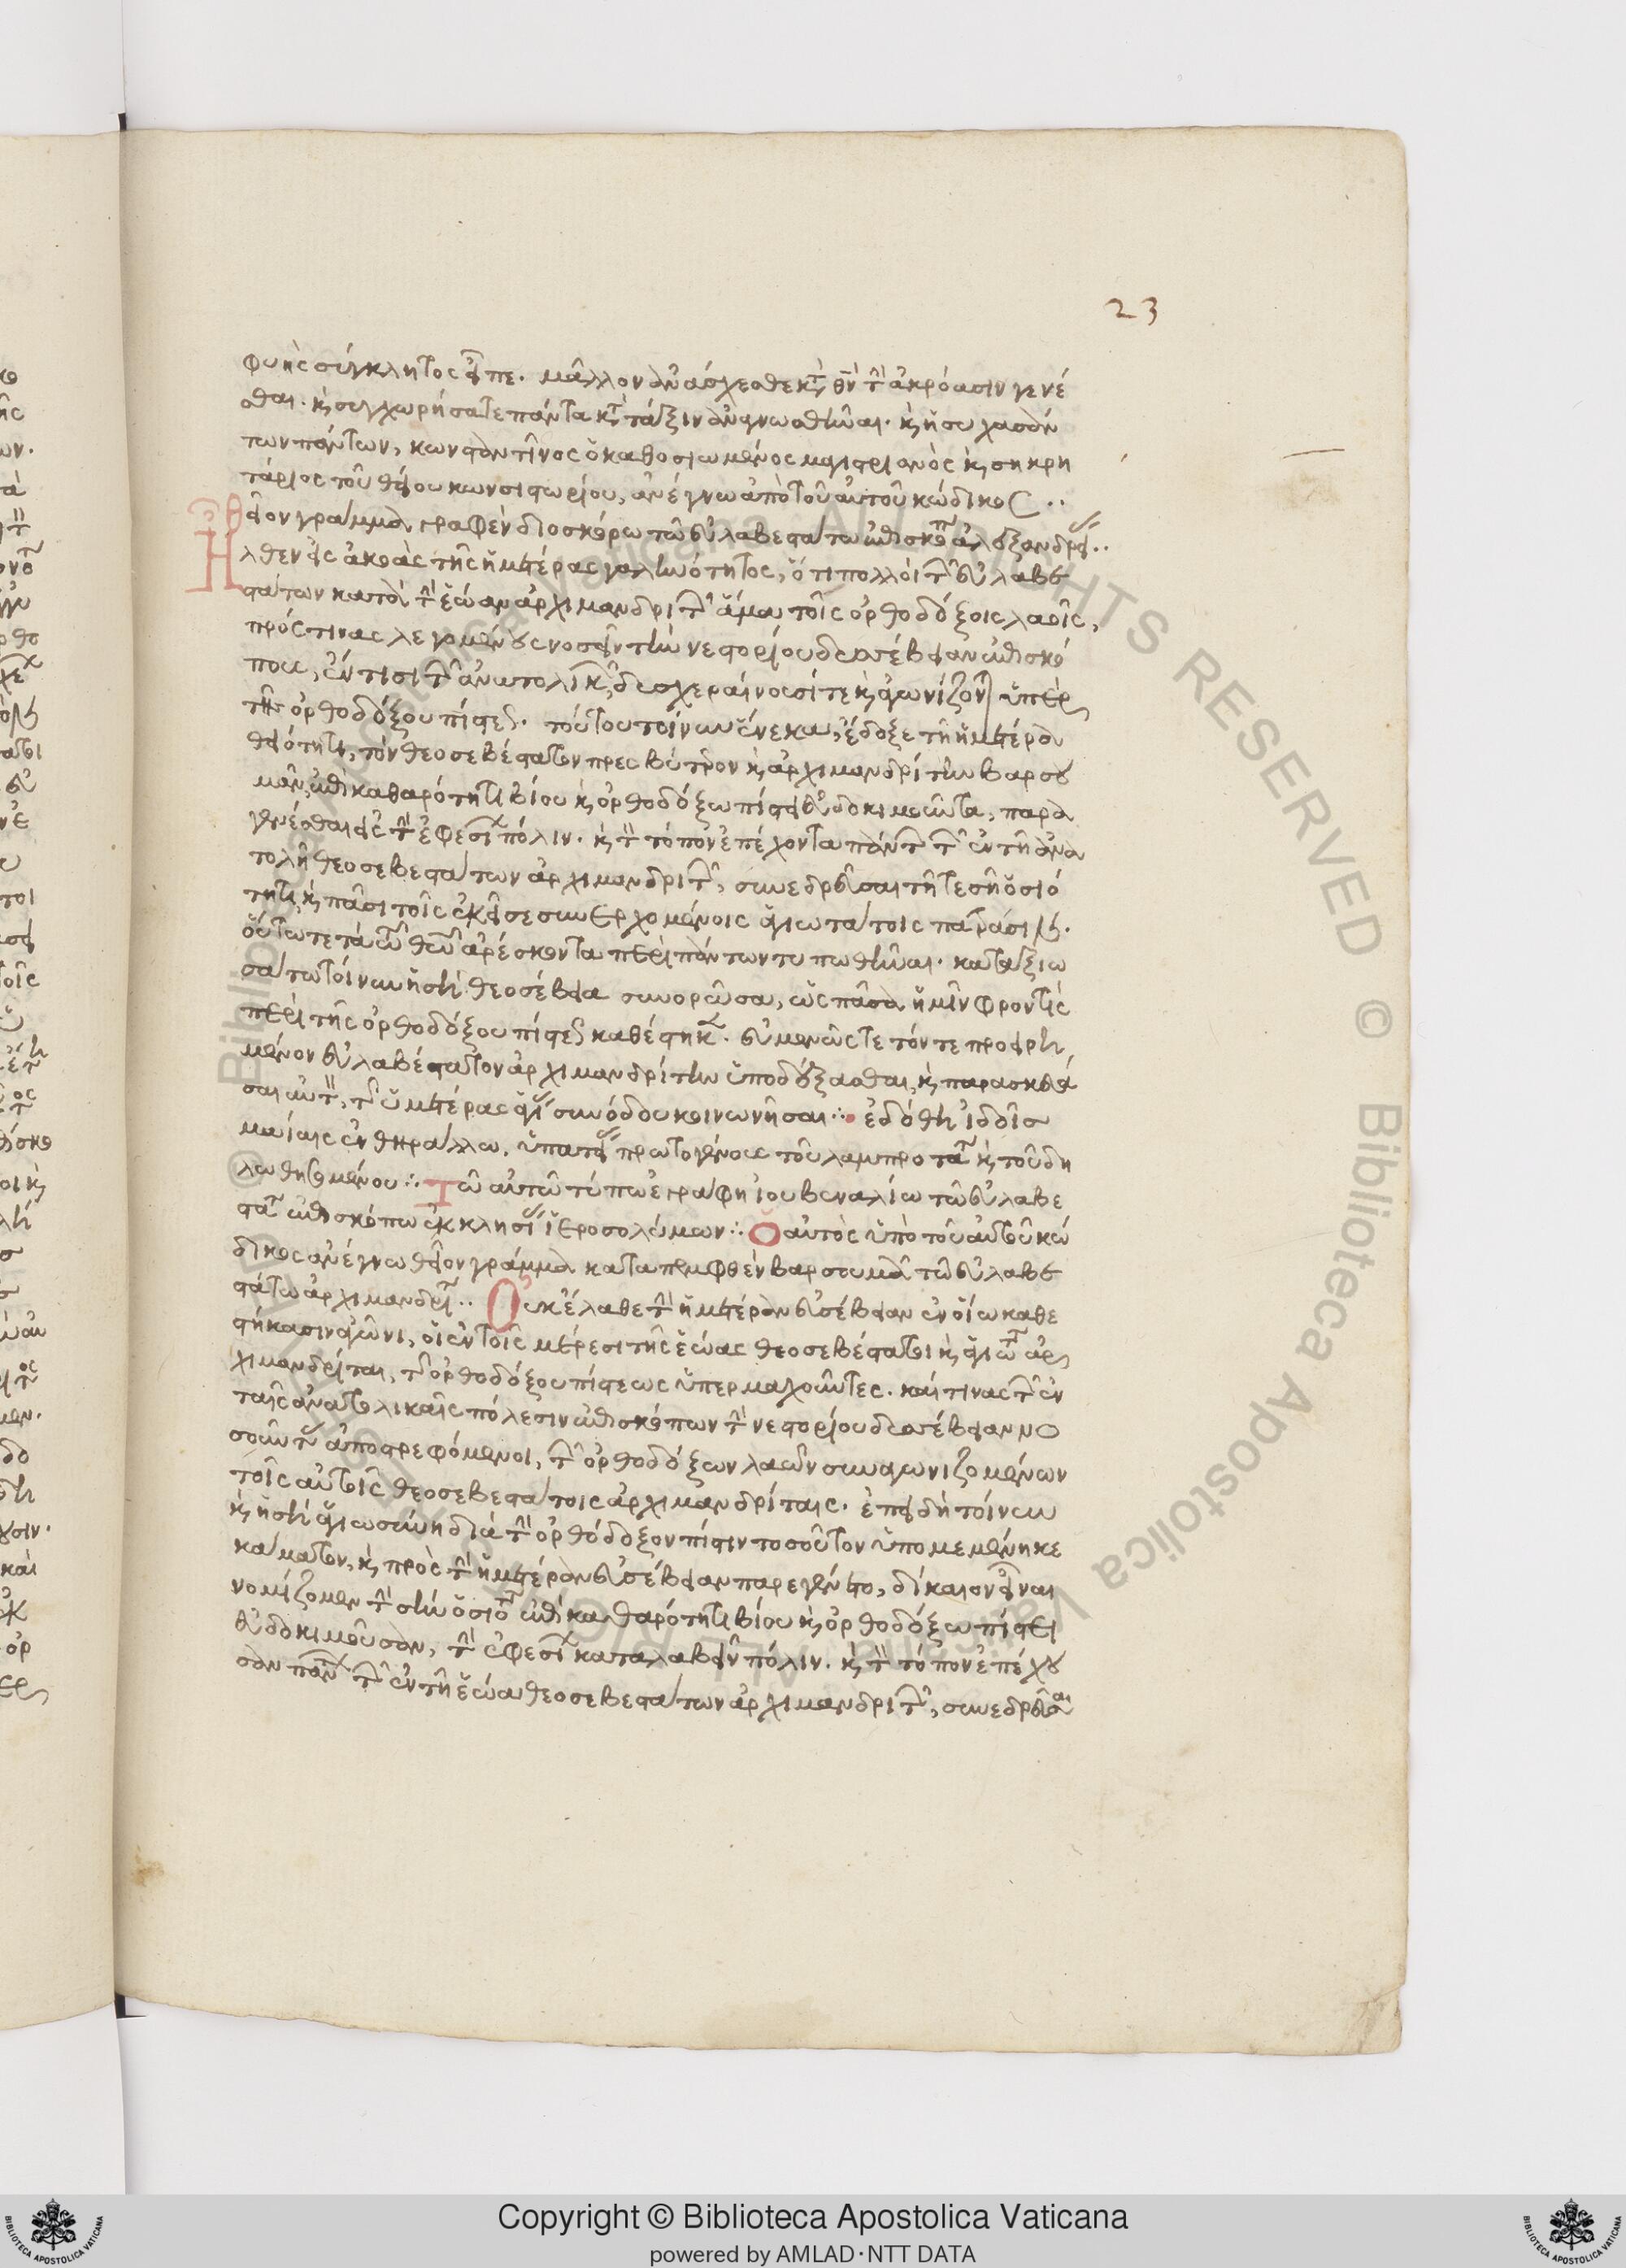 23
φυὴς σύγκλητος εἶπε. μᾶλλον ἀνάσχεσθε κατὰ θεὸν τὴν ἀκρόασιν γενέ
σθαι. καὶ συγχωρήσατε πάντα κατὰ τάξιν ἀναγνωσθῆναι. καὶ ἡσυχασάν
των πάντων, κωνσταντῖνος ὁ καθοσιωμένος μαγιστριανὸς καὶ σηκρη
τάριος τοῦ θείου κωνσιστωρίου, ἀνέγνω ἀπὸ τοῦ αὐτοῦ κώδικος..
θεῖον γράμμα γραφὲν διοσκόρω τῶ εὐλαβεστάτω ἐπισκόπω ἀλεξανδρείας..
Ἦλθεν εἰς ἀκοὰς τῆς ἡμετέρας γαληνότητος, ὅτι πολλοὶ τῶν εὐλαβε
στάτων κατὰ τὴν ἑώαν ἀρχιμανδριτῶν ἅμα τοῖς ὀρθοδόξοις λαοῖς,
πρός τινας λεγομένους νοσεῖν τὴν νεστορίου δυσσέβειαν ἐπισκό
πους, ἔν τισι τῶν ἀνατολικῶν, δυσχεραίνουσί τε καὶ ἀγωνίζονται ὑπὲρ
τῆς ὀρθοδόξου πίστεως. τούτου τοίνυν ἕνεκα, ἔδοξε τῆ ἡμετέρα
θειότητι, τὸν θεοσεβέστατον πρεσβύτερον καὶ ἀρχιμανδρίτην βαρσου
μᾶν, ἐπὶ καθαρότητι βίου καὶ ὀρθοδόξω πίστει εὐδοκιμοῦντα, παρα
γενέσθαι εἰς τὴν ἐφεσίων πόλιν. καὶ τὸν τόπον ἐπέχοντα πάντων τῶν ἐν τῆ ἀνα
τολῆ θεοσεβεστάτων ἀρχιμανδριτῶν, συνεδρεῦσαι τῆ τε σῆ ὁσιό
τητι, καὶ πᾶσι τοῖς ἐκεῖσε συνερχομένοις ἁγιωτάτοις πατράσιν.
οὕτω τε τὰ τῶ θεῶ ἀρέσκοντα περὶ πάντων τυπωθῆναι. καταξιω
σάτω τοίνυν ἡ σὴ θεοσέβεια συνορῶσα, ὡς πᾶσα ἡμῖν φροντὶς
περὶ τῆς ὀρθοδόξου πίστεως καθέστηκεν. εὐμενῶς τε τόν τε προειρη
μένον εὐλαβέστατον ἀρχιμανδρίτην ὑποδέξασθαι, καὶ παρασκευά
σαι αὐτὸν, τῆς ὑμετέρας ἁγίας συνόδου κοινωνῆσαι ∴ ἐδόθη ἰδοῖς
μαίαις ἐν θηράλλω, ὑπατείας πρωτογένους τοῦ λαμπροτάτου καὶ τοῦ δη
λωθησομένου ∴ Τῶ αὐτῶ τύπω ἐγράφη ἰουβεναλίω τῶ εὐλαβε
στάτω ἐπισκόπω ἐκκλησίας ἱεροσολύμων ∴ Ὁ αὐτὸς ὑπὸ τοῦ αὐτοῦ κώ
δικος ἀνέγνω θεῖον γράμμα καταπεμφθὲν βαρσουμᾶ τῶ εὐλαβε
στάτω ἀρχιμανδρίτη.. Οὐκ ἔλαθε τὴν ἡμετέραν εὐσέβειαν ἐν οἵω καθε
στήκασιν ἀγῶνι, οἱ ἐν τοῖς μέρεσι τῆς ἑώας θεοσεβέστατοι καὶ ἁγιώτατοι ἀρ
χιμανδρίται, τῆς ὀρθοδόξου πίστεως ὑπερμαχοῦντες. καί τινας τῶν ἐν
ταῖς ἀνατολικαῖς πόλεσιν ἐπισκόπων τὴν νεστορίου δυσσέβειαν νο
σοῦντας ἀποστρεφόμενοι, τῶν ὀρθοδόξων λαῶν συναγωνιζομένων
τοῖς αὐτοῖς θεοσεβεστάτοις ἀρχιμανδρίταις. ἐπειδὴ τοίνυν
καὶ ἡ σὴ ἁγιωσύνη διὰ τὴν ὀρθόδοξον πίστιν τοσοῦτον ὑπομεμένηκε
κάματον, καὶ πρὸς τὴν ἡμετέραν εὐσέβειαν παρεγένετο, δίκαιον εἶναι
νομίζομεν τὴν σὴν ὁσιότητα ἐπὶ καθαρότητι βίου καὶ ὀρθοδόξω πίστει
εὐδοκιμοῦσαν, τὴν ἐφεσίων καταλαβεῖν πόλιν. καὶ τὸν τόπον ἐπέχου
σαν πάντων τῶν ἐν τῆ ἑώα θεοσεβεστάτων ἀρχιμανδριτῶν, συνεδρεῦσαι
Copyright © Biblioteca Apostolica Vaticana
powered by AMLAD·NTT DATA